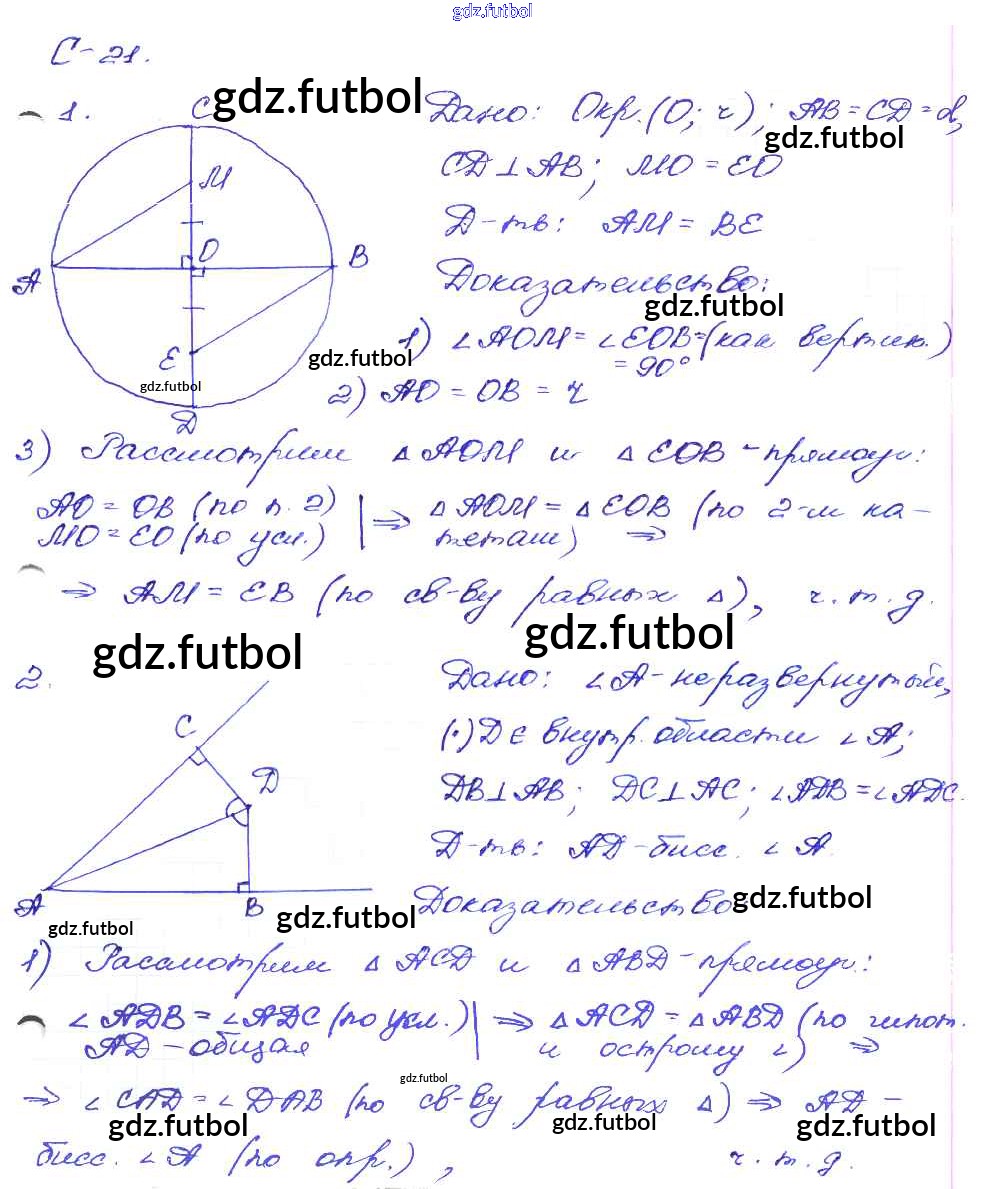 gdz.futbol
С-21.
1. C gdz.futbol Дано: Окр.(О; r); AB = CD = d,
gdz.futbol
CD ⊥ AB; МО = ЕО
М
Д-ть: АМ = ВЕ
О В
А Доказательство:
gdz.futbol
1) ∠АОМ = ∠ЕОВ = (как вертик.)
= 90°
Е gdz.futbol
gdz.futbol
2) АО = ОВ = r
D
3) Рассмотрим △ АОМ и △ ЕОВ - прямоуг.:
АО = ОВ (по п. 2) | ⇒ △ АОМ = △ ЕОВ (по 2-м ка-
МО = ЕО (по усл.) | тетам) ⇒
⇒ АМ = ЕВ (по св-ву равных △), ч.т.д.
gdz.futbol gdz.futbol
2. Дано: ∠А - неразвернутый,
С (·) D ∈ внутр. области ∠А;
D DB ⊥ AB; DC ⊥ AC; ∠ADB = ∠ADC.
Д-ть: AD - бисс. ∠А.
А В gdz.futbol Доказательство gdz.futbol
gdz.futbol
1) Рассмотрим △ ACD и △ ABD - прямоуг.:
∠ADB = ∠ADC (по усл.) | ⇒ △ ACD = △ ABD (по гипот.
AD - общая | и острому ∠) ⇒
gdz.futbol
⇒ ∠CAD = ∠DAB (по св-ву равных △) ⇒ AD -
gdz.futbol gdz.futbol gdz.futbol
бисс. ∠А (по опр.), ч.т.д.